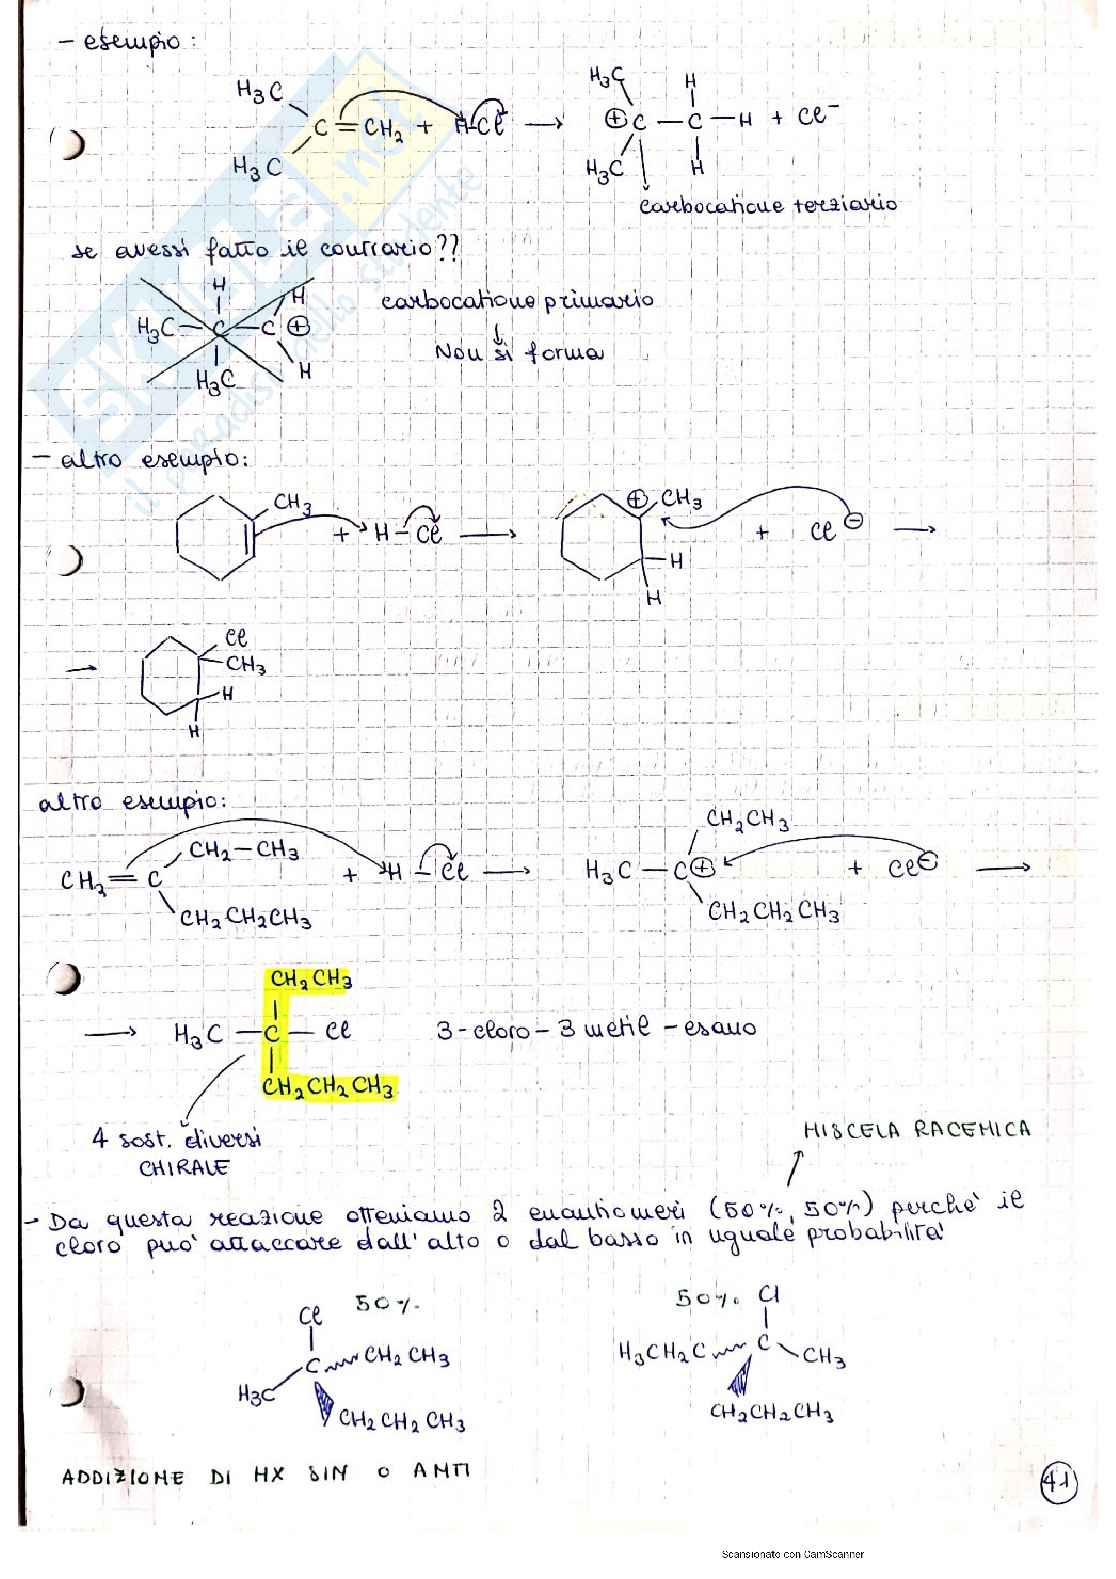 - esempio:
H₃C
C = CH₂ + H-Cl → 
H₃C
H₃C
⊕C - C - H + Cl⁻
H
H₃C
H
carbocatione terziario
se avessi fatto il contrario??
H
H
H₃C - C - C ⊕
H₃C
H
carbocatione primario
↓
Non si forma
- altro esempio:
CH₃
+ H - Cl →
⊕ CH₃
H
H
+ Cl⊖ →
→
Cl
CH₃
H
H
altro esempio:
CH₂ - CH₃
CH₂ = C
CH₂CH₂CH₃
+ H - Cl →
CH₂CH₃
H₃C - C⊕
CH₂CH₂CH₃
+ Cl⊖ →
CH₂CH₃
→ H₃C - C - Cl
CH₂CH₂CH₃
3-cloro-3 metil-esano
4 sost. diversi
CHIRALE
MISCELA RACEMICA
- Da questa reazione otteniamo 2 enantiomeri (50%, 50%) perché il
cloro può attaccare dall'alto o dal basso in uguale probabilità
50%
Cl
C
CH₂CH₃
H₃C
CH₂CH₂CH₃
50%
Cl
H₃CH₂C
C
CH₃
CH₂CH₂CH₃
ADDIZIONE DI HX SIN O ANTI
41
Scansionato con CamScanner